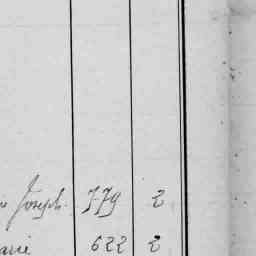 Joseph. 779 2
arie 622 2